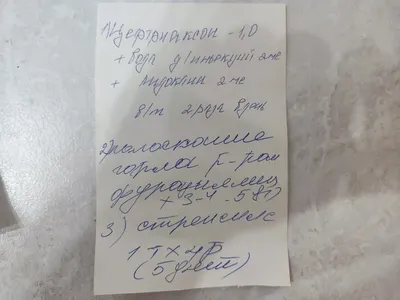 1) Цефтриаксон - 1,0
+ вода д/инъекций 2 мл
+ лидокаин 2 мл
в/м 2 раза в день
2) полоскание
горла р-ром
фурацилина
+ 3-4
3) стрепсилс
1 т х 4 р
(5 дней)